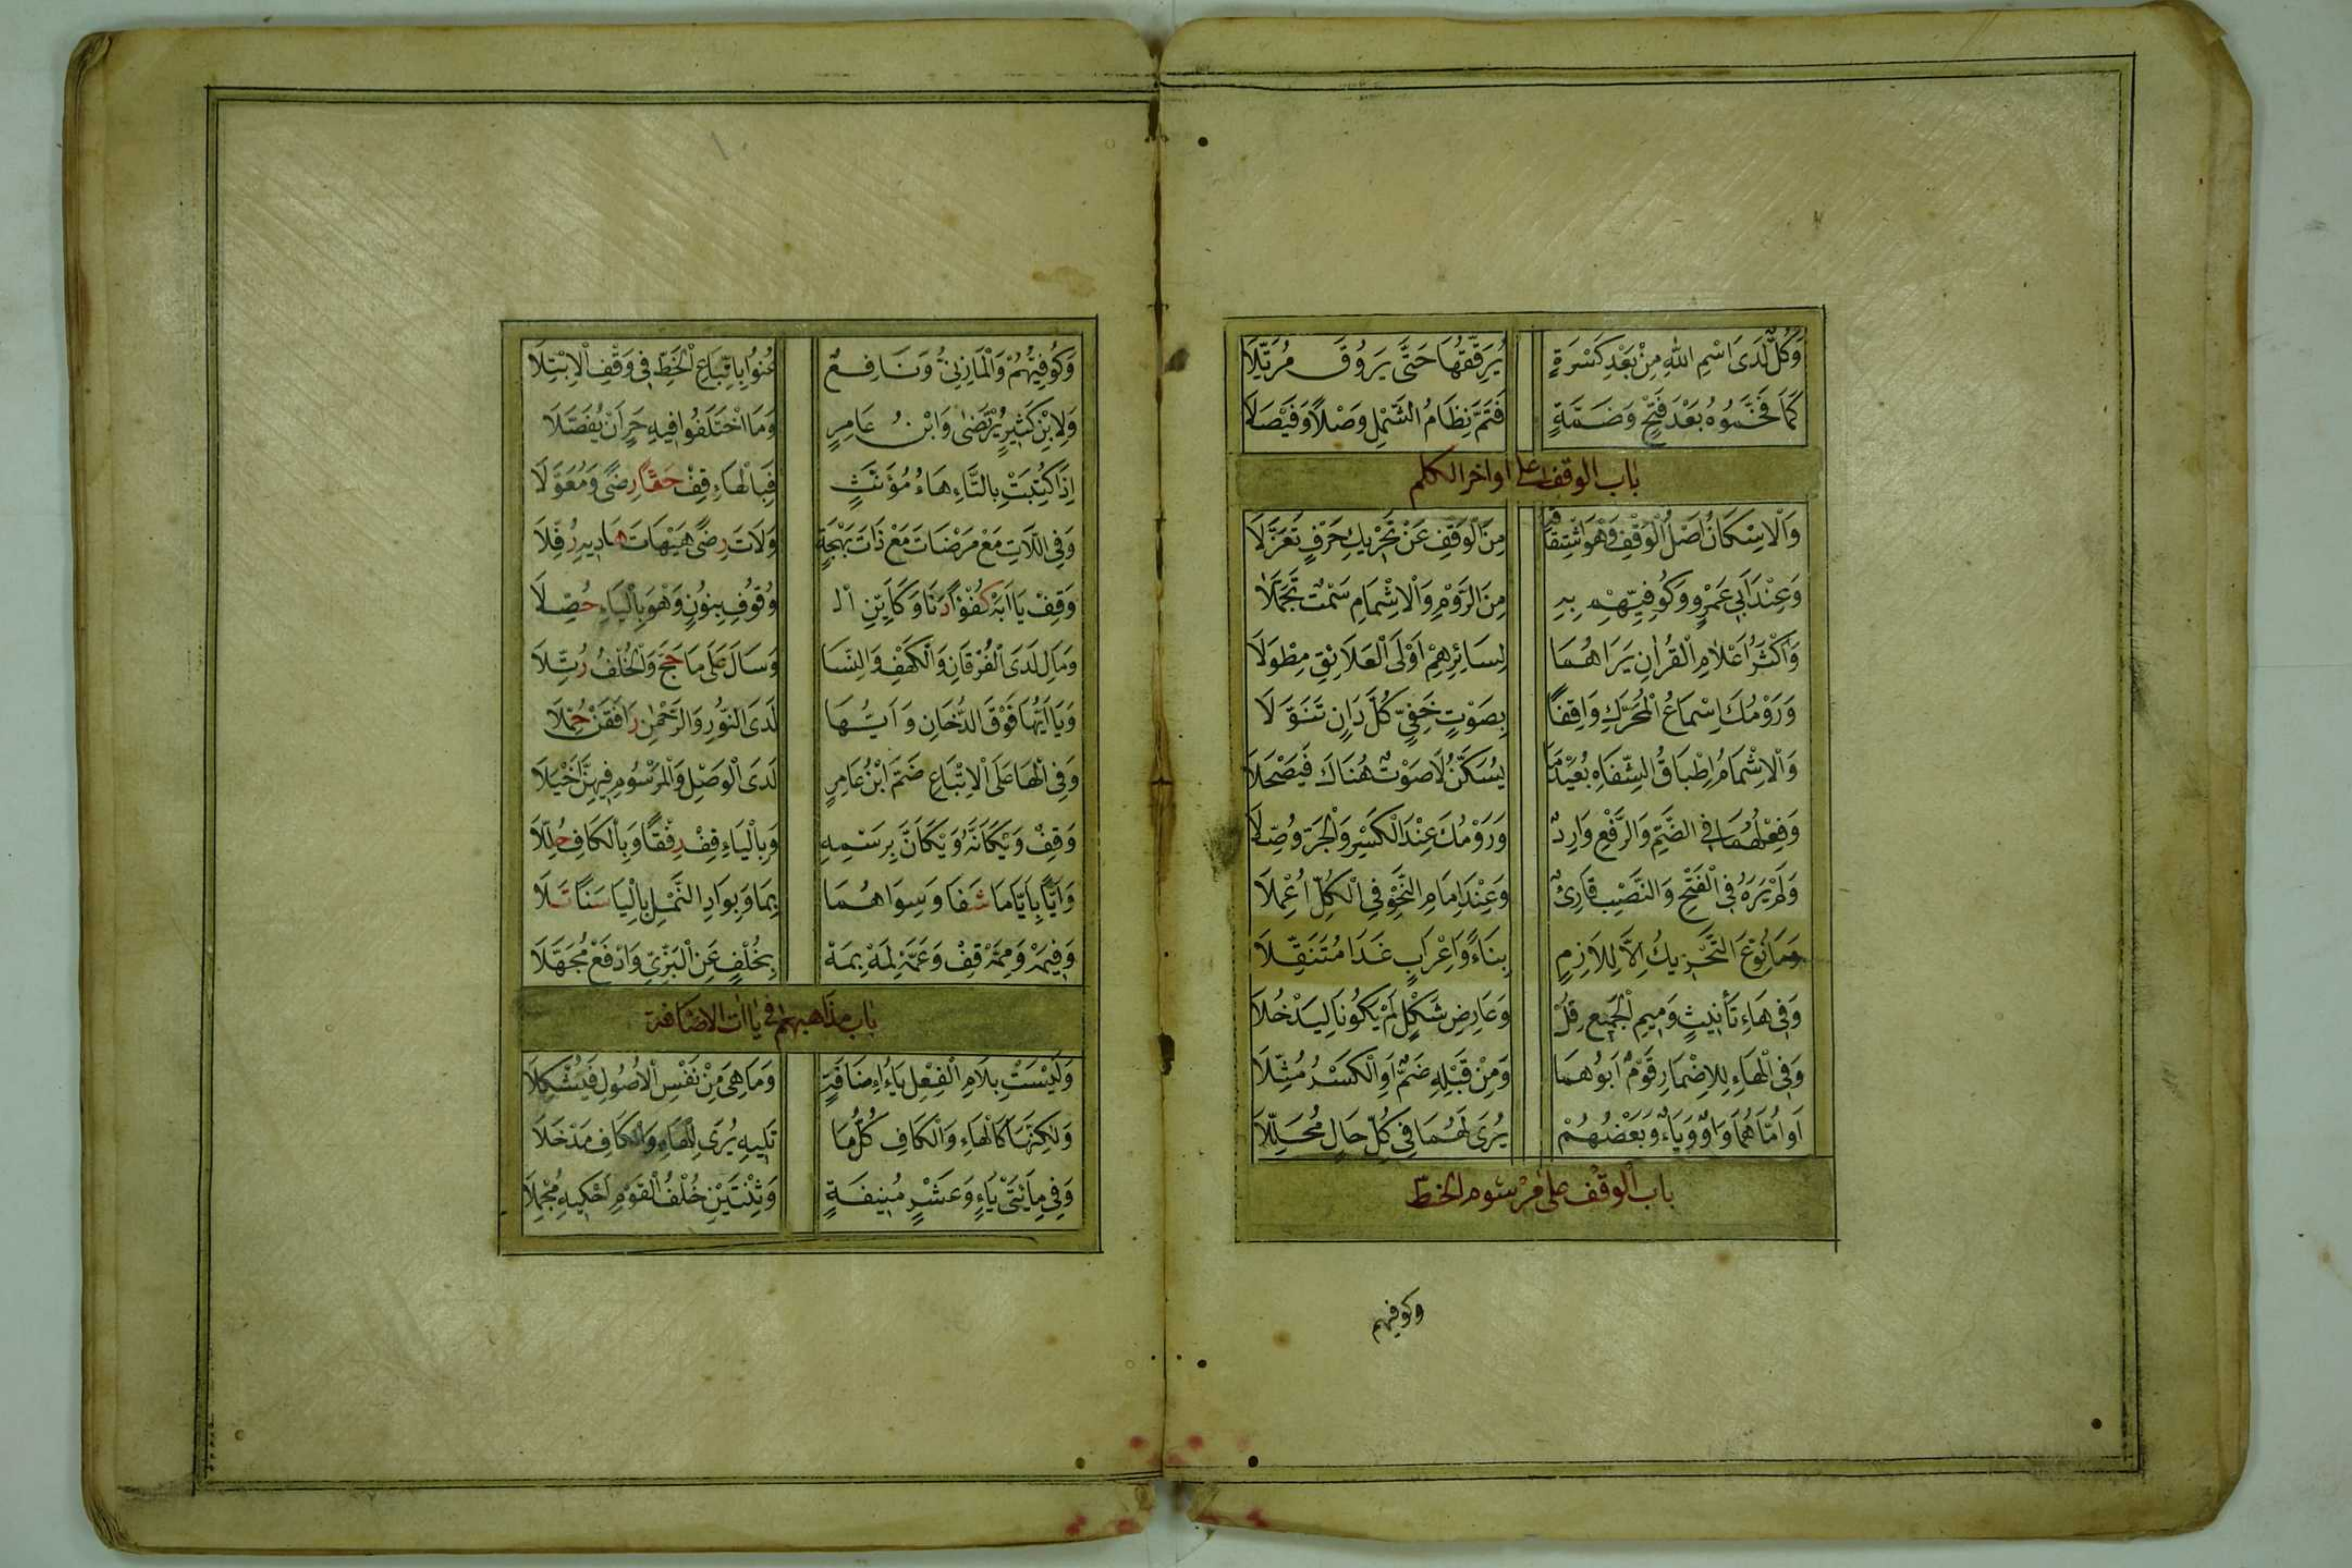 وَكُلٌّ لَدَى اسْمِ اللهِ مِنْ بَعْدِ كَسْرَةٍ يُرَقِّقُهَا حَتَّى يَرُوقَ مُرَتَّلَا
كَمَا فَخَّمُوهُ بَعْدَ فَتْحٍ وَضَمَّةٍ فَتَمَّ نِظَامُ الشَّمْلِ وَصْلًا وَفَيْصَلَا
باب الوقف على اواخر الكلم
وَالْاِسْكَانُ اَصْلُ الْوَقْفِ وَهْوَ اشْتِقَاقُهُ مِنَ الْوَقْفِ عَنْ تَحْرِيكِ حَرْفٍ تَعَزَّلَا
وَعِنْدَ اَبِي عَمْرٍو وَكُوفِيِّهِمْ بِهِ مِنَ الرَّوْمِ وَالْاِشْمَامِ سَمْتٌ تَجَمَّلَا
وَاَكْثَرُ اَعْلَامِ الْقُرَانِ يَرَاهُمَا لِسَائِرِهِمْ اَوْلَى الْعَلَائِقِ مِطْوَلَا
وَرَوْمُكَ اِسْمَاعُ الْمُحَرَّكِ وَاقِفًا بِصَوْتٍ خَفِيٍّ كُلَّ دَانٍ تَنَوَّلَا
وَالْاِشْمَامُ اِطْبَاقُ الشِّفَاهِ بُعَيْدَ مَا يُسَكَّنُ لَا صَوْتٌ هُنَاكَ فَيَصْحَلَا
وَفِعْلُهُمَا فِي الضَّمِّ وَالرَّفْعِ وَارِدٌ وَرَوْمُكَ عِنْدَ الْكَسْرِ وَالْجَرِّ وُصِّلَا
وَلَمْ يَرَهُ فِي الْفَتْحِ وَالنَّصْبِ قَارِئٌ وَعِنْدَ اِمَامِ النَّحْوِ فِي الْكُلِّ اُعْمِلَا
وَمَا نُوِّعَ التَّحْرِيكُ اِلَّا لِلَازِمٍ بِنَاءً وَاِعْرَابٍ غَدَا مُتَنَقِّلَا
وَفِي هَاءِ تَأْنِيثٍ وَمِيمِ الْجَمِيعِ قُلْ وَعَارِضِ شَكْلٍ لَمْ يَكُونَا لِيَدْخُلَا
وَفِي الْهَاءِ لِلْاِضْمَارِ قَوْمٌ اَبَوْهُمَا وَمِنْ قَبْلِهِ ضَمٌّ اَوِ الْكَسْرُ مُثِّلَا
اَوُ امَّاهُمَا وَاوٌ وَيَاءٌ وَبَعْضُهُمْ يُرَى لَهُمَا فِي كُلِّ حَالٍ مُحَلِّلَا
باب الوقف على مرسوم الخط
وكوفيهم
وَكُوفِيُّهُمْ وَالْمَازِنِيُّ وَنَافِعٌ عُنُوا بِاتِّبَاعِ الْخَطِّ فِي وَقْفِ الْاِبْتِلَا
وَلِابْنِ كَثِيرٍ يُرْتَضَى وَابْنُ عَامِرٍ وَمَا اخْتَلَفُوا فِيهِ حَرٍ اَنْ يُفَصَّلَا
اِذَا كُتِبَتْ بِالتَّاءِ هَاءُ مُؤَنَّثٍ فَبِالْهَاءِ قِفْ حَقًّا رِضًى وَمُعَوَّلَا
وَفِي اللَّاتِ مَعْ مَرْضَاتِ مَعْ ذَاتَ بَهْجَةٍ وَلَاتَ رِضًى هَيْهَاتَ هَادِيهِ رُفِّلَا
وَقِفْ يَا اَبَهْ كُفْؤًا دَنَا وَكَاَيِّنِ الـ وُقُوفُ بِنُونٍ وَهْوَ بِالْيَاءِ حُصِّلَا
وَمَالِ لَدَى الْفُرْقَانِ وَالْكَهْفِ وَالنِّسَا وَسَالَ عَلَى مَا حَجَّ وَالْخُلْفُ رُتِّلَا
وَيَا اَيُّهَا فَوْقَ الدُّخَانِ وَاَيُّهَا لَدَى النُّورِ وَالرَّحْمٰنِ رَافَقْنَ حُمَّلَا
وَفِي الْهَا عَلَى الْاِتْبَاعِ ضَمَّ ابْنُ عَامِرٍ لَدَى الْوَصْلِ وَالْمَرْسُومُ فِيهِنَّ اَخْيَلَا
وَقِفْ وَيْكَاَنَّهُ وَيْكَاَنَّ بِرَسْمِهِ وَبِالْيَاءِ قِفْ رِفْقًا وَبِالْكَافِ حُلِّلَا
وَاَيًّا بِاَيًّامَا شَفَا وَسِوَاهُمَا بِمَا وَبِوَادِ النَّمْلِ بِالْيَا سَنًا تَلَا
وَفِيمَهْ وَمِمَّهْ قِفْ وَعَمَّهْ لِمَهْ بِمَهْ بِخُلْفٍ عَنِ الْبَزِّيِّ وَادْفَعْ مُجَهِّلَا
باب مذاهبهم في ياات الاضافة
وَلَيْسَتْ بِلَامِ الْفِعْلِ يَاءُ اِضَافَةٍ وَمَا هِيَ مِنْ نَفْسِ الْاُصُولِ فَتُشْكِلَا
وَلٰكِنَّهَا كَالْهَاءِ وَالْكَافِ كُلُّ مَا تَلِيهِ يُرَى لِلْهَاءِ وَالْكَافِ مَدْخَلَا
وَفِي مِائَتَيْ يَاءٍ وَعَشْرٍ مُنِيفَةٍ وَثِنْتَيْنِ خُلْفُ الْقَوْمِ اَحْكِيهِ مُجْمِلَا